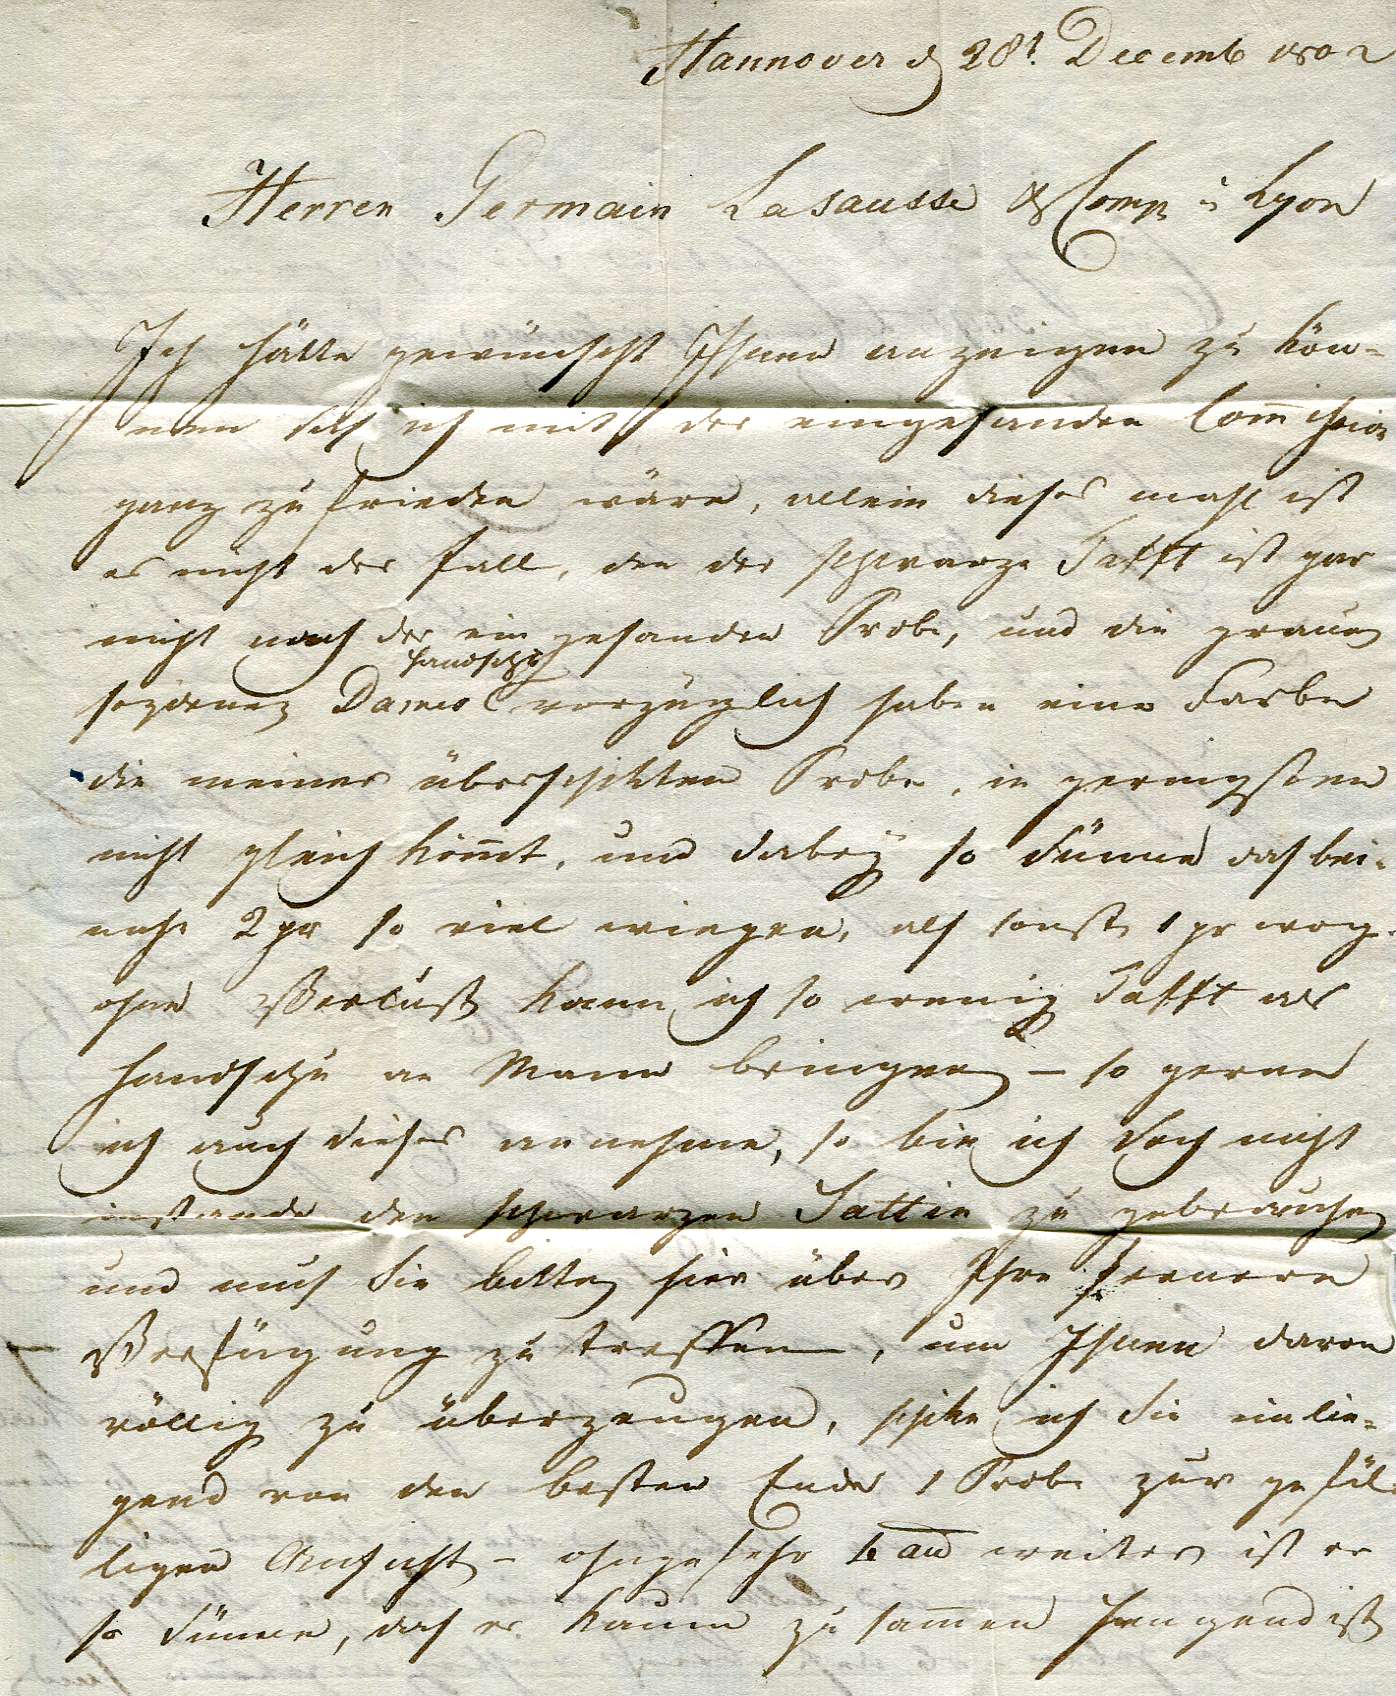 Hannover d 28t. Decemb 1802
Herren Germain Lasausse & Comp in Lyon
Ich hätte gewünscht Ihnen anzeigen zu kön-
nen das ich mit der eingesanden Commission
ganz zu frieden wäre, allein dieses mahl ist
es nicht der fall, den der schwarze Tafft ist gar
nicht nach der ein gesanden Probe, und die grauen
handschu
seydenen Dames vorzüglich haben eine Farbe
die meiner überschikten Probe, in geringsten
nicht gleich kömt, und dabey so dünne das bei-
nahe 2 pr so viel wiegen, als sonst 1 pr wog.
ohne Verlust kann ich so wenig Tafft als
handschu an Mann bringen – so gerne
ich auch dieses annehme, so bin ich doch nicht
imstande den schwarzen Sattin zu gebrauchen
und mus Sie bitten hier über Ihre fernere
Verfügung zu treffen, um Ihnen davon
völlig zu überzeugen, schike ich Sie einlie-
gend von den besten Ende 1 Probe zur gefäl-
ligen Ansicht – ohngefehr weiter ist er
so dünne, das er kaum zu sammen hengend ist